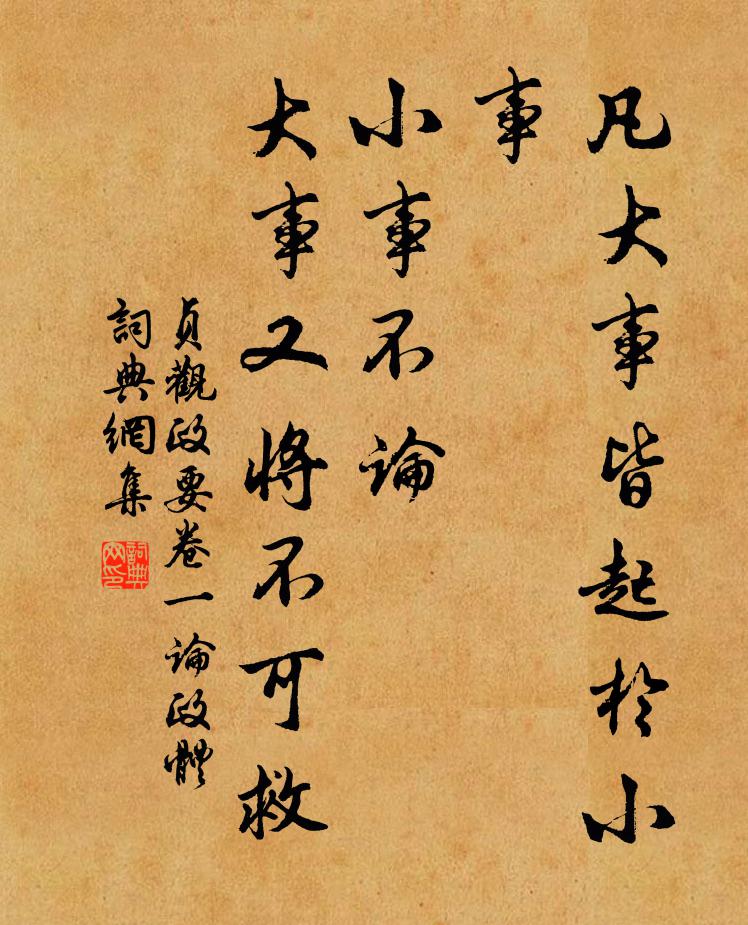 凡大事皆起於小
事
小事不論
大事又將不可救
貞觀政要卷一論政體
詞典網集
詞典網印